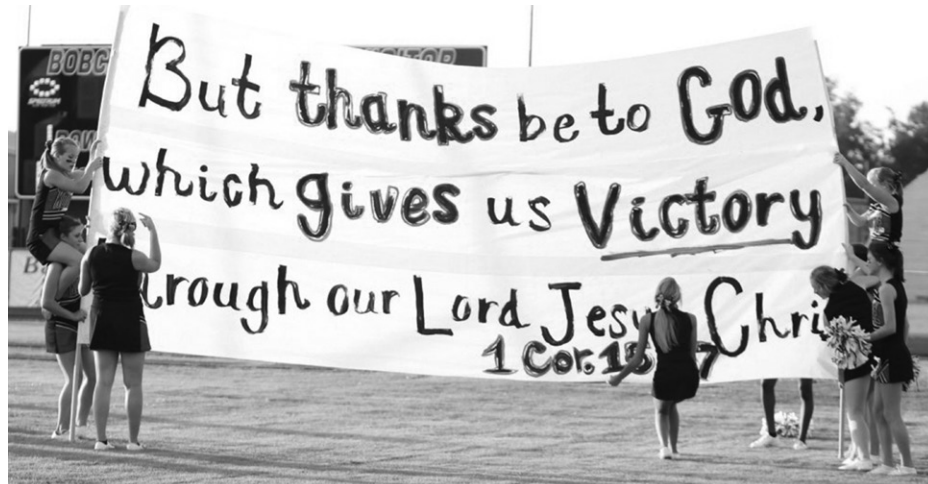 BOBC ITOR
But thanks be to God,
which gives us Victory
rough our Lord Jesu Chri
1 Cor. 15 7